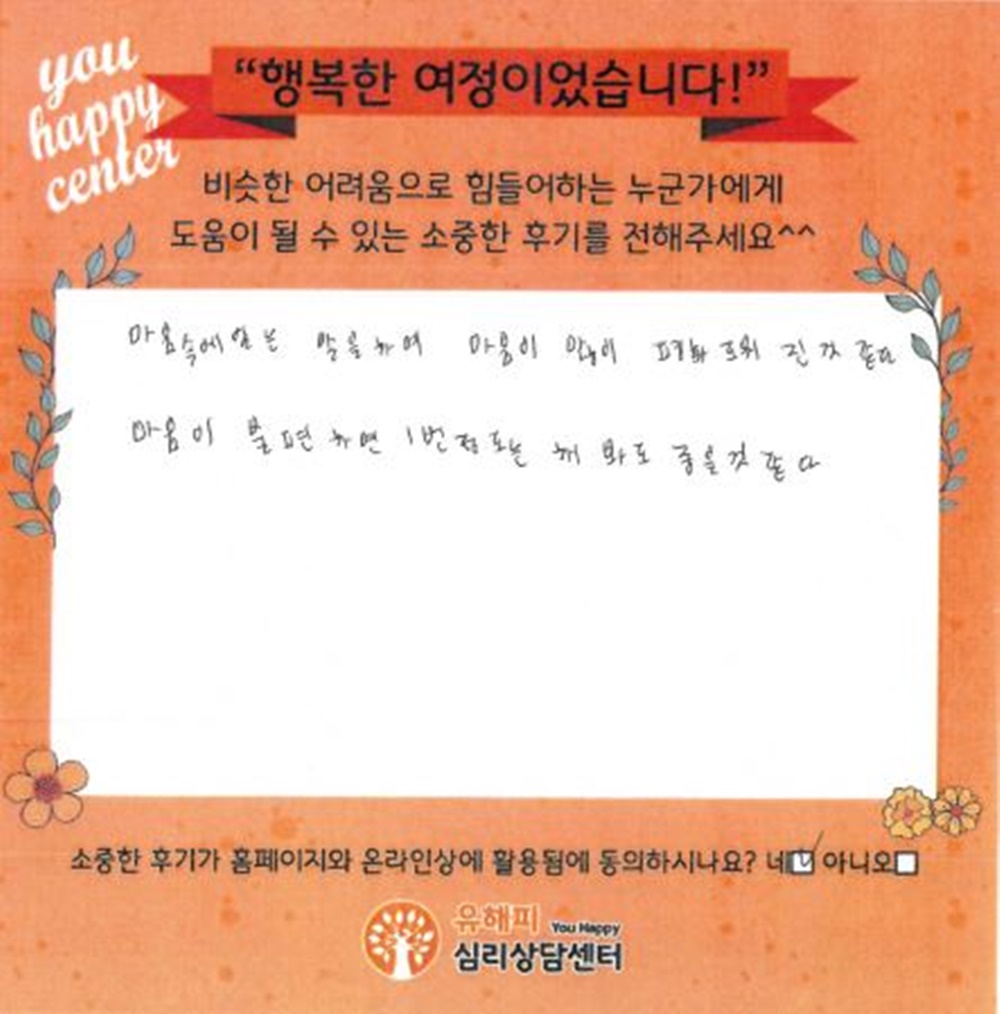 you
happy
center
“행복한 여정이었습니다!”
비슷한 어려움으로 힘들어하는 누군가에게
도움이 될 수 있는 소중한 후기를 전해주세요^^
마음속에있는 말을하여 마음이 많이 편해 진 것 같다
마음이 불편하면 1번정도는 해 봐도 좋을것 같다
소중한 후기가 홈페이지와 온라인상에 활용됨에 동의하시나요? 네 아니오
유해피 You Happy
심리상담센터